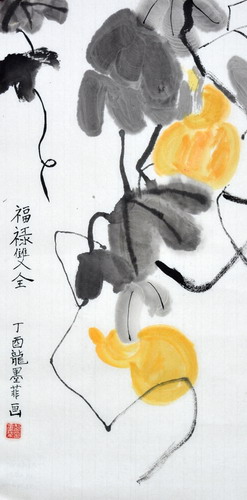 福禄雙全
丁酉龍墨菲画